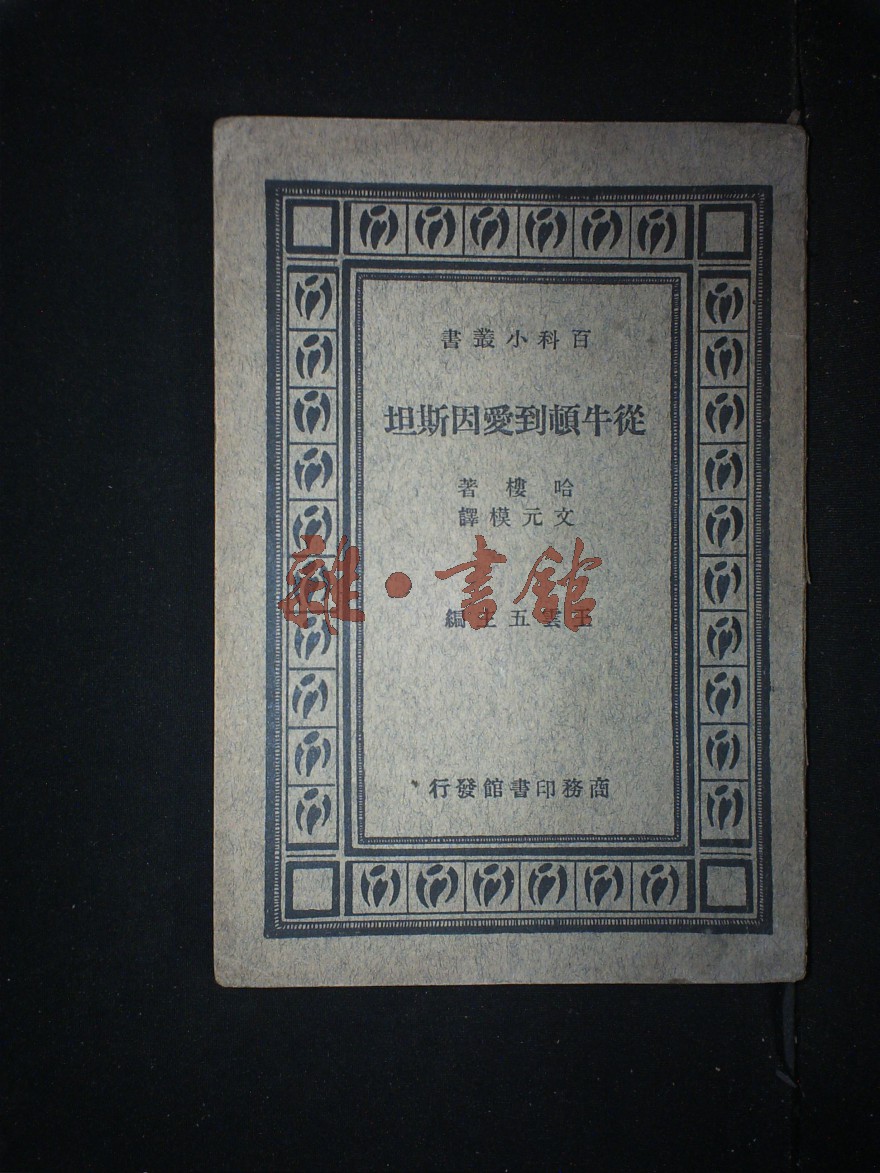 百科小叢書
從牛頓到愛因斯坦
哈樓著
文元模譯
雜·書館
王雲五主編
商務印書館發行